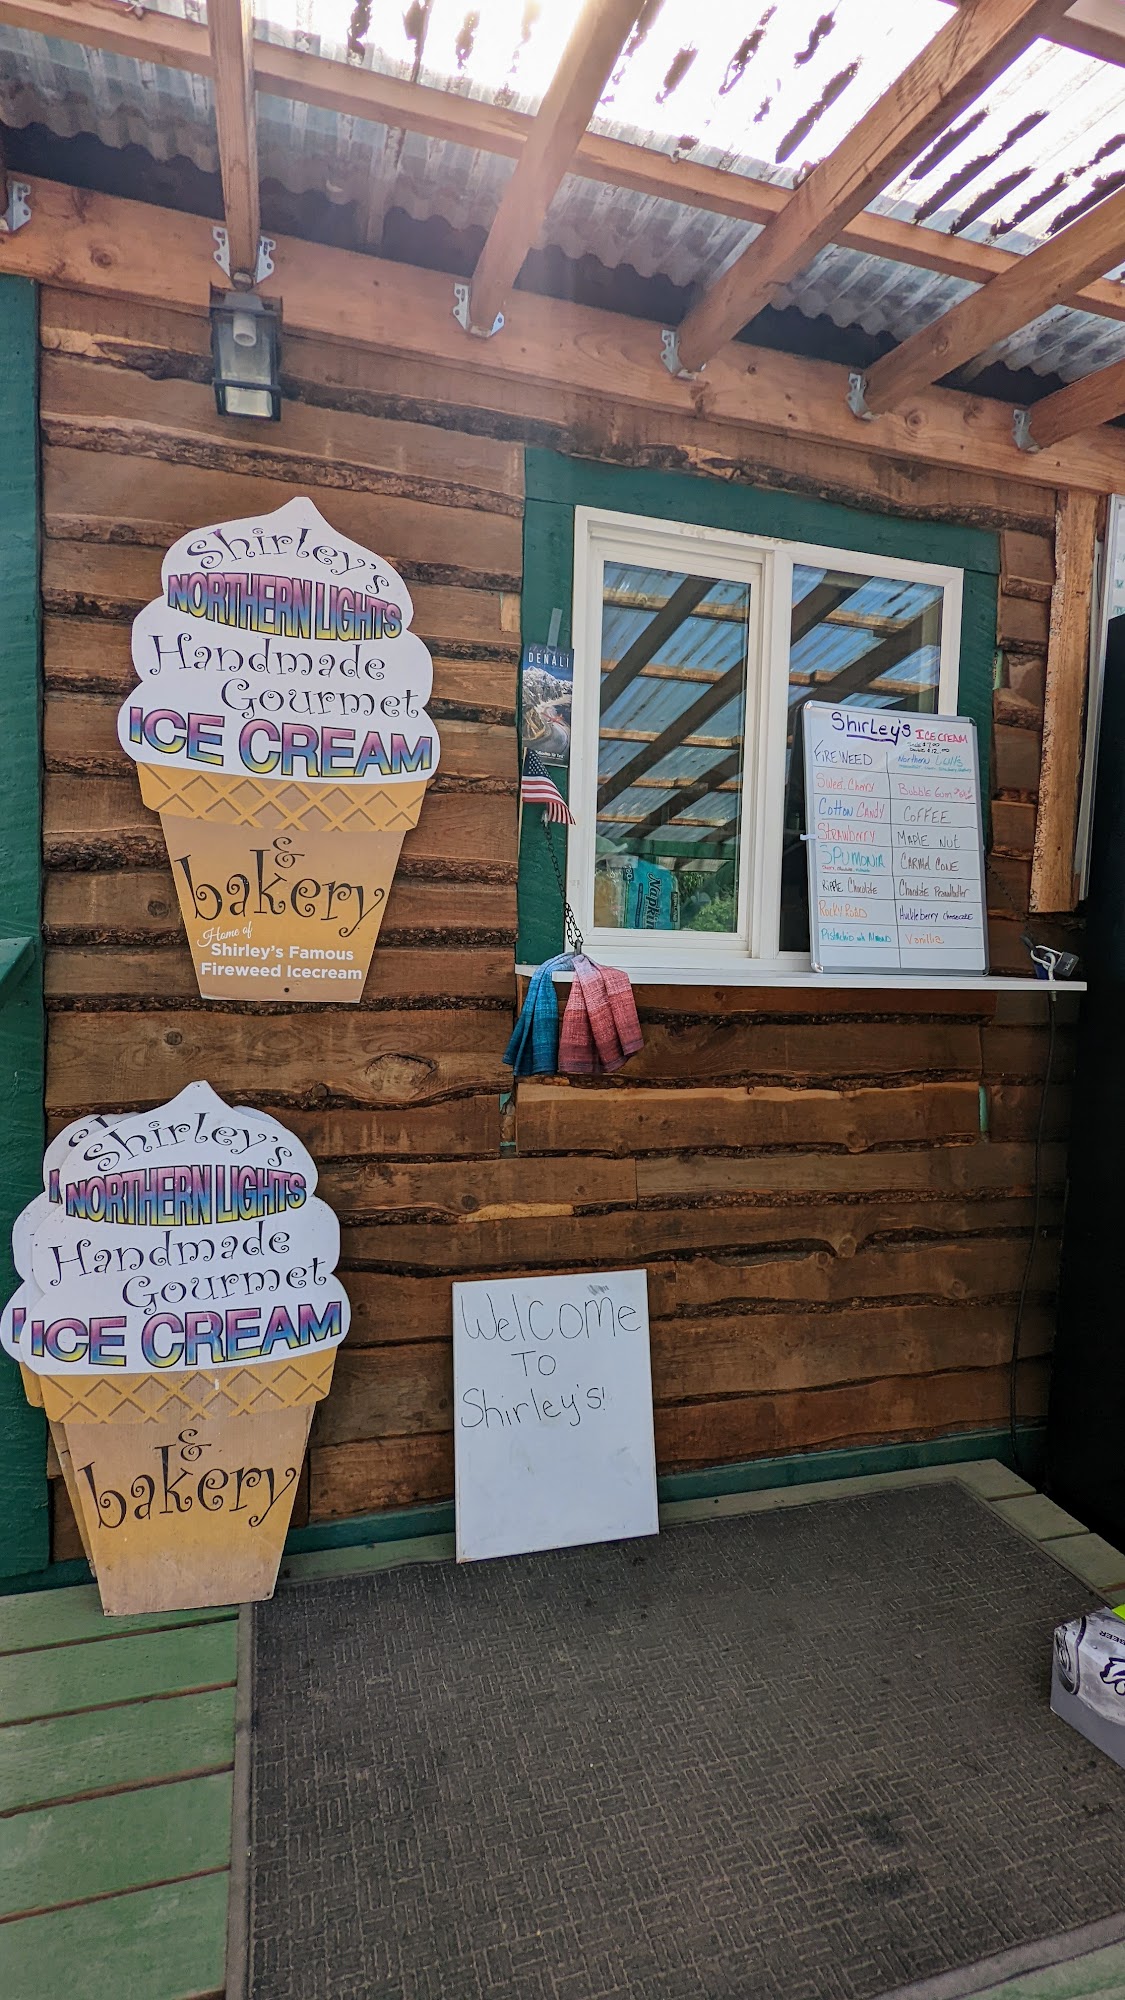 Shirley's
NORTHERN LIGHTS
Handmade
Gourmet
ICE CREAM
&
bakery
Home of
Shirley's Famous
Fireweed Icecream
DENALI
Napkin
Shirley's ICE CREAM
FIREWEED
Northern Lights
Sweet Cherry
Bubble Gum
Cotton Candy
COFFEE
Strawberry
Maple Nut
SPUMONIA
Ripple Chocolate
Rocky Road
Huckleberry Cheesecake
Vanilla
Shirley's
NORTHERN LIGHTS
Handmade
Gourmet
ICE CREAM
&
bakery
Welcome
TO
Shirley's!